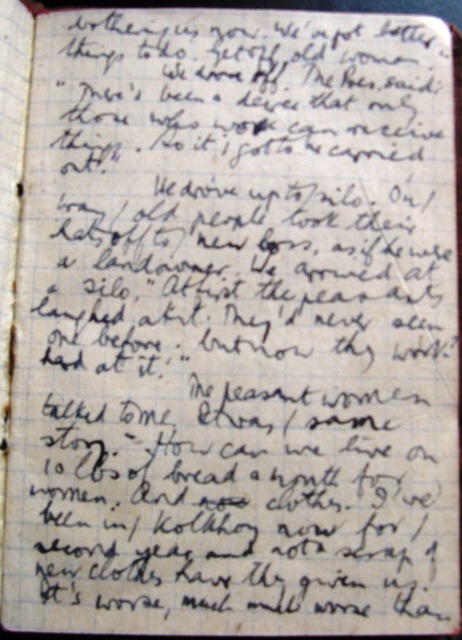 bothering us now. We've got better
things to do. Get off, old woman."
We drove off. The Pres. said:
"There's been a decree that only
those who work can receive
things. So it's got to be carried
out."
We drove up to / silo. On /
way / old people took their
hats off to / new boss, as if he were
a landowner. We arrived at
a silo. "At first the peasants
laughed at it. They'd never seen
one before. but now they work
hard at it."
The peasant women
talked to me. It was / same
story. "How can we live on
10 lbs of bread a month for
women. And no clothes. I've
been in / Kolkhoz now for /
second year and not a scrap of
new clothes have they given us.
It's worse, much much worse than